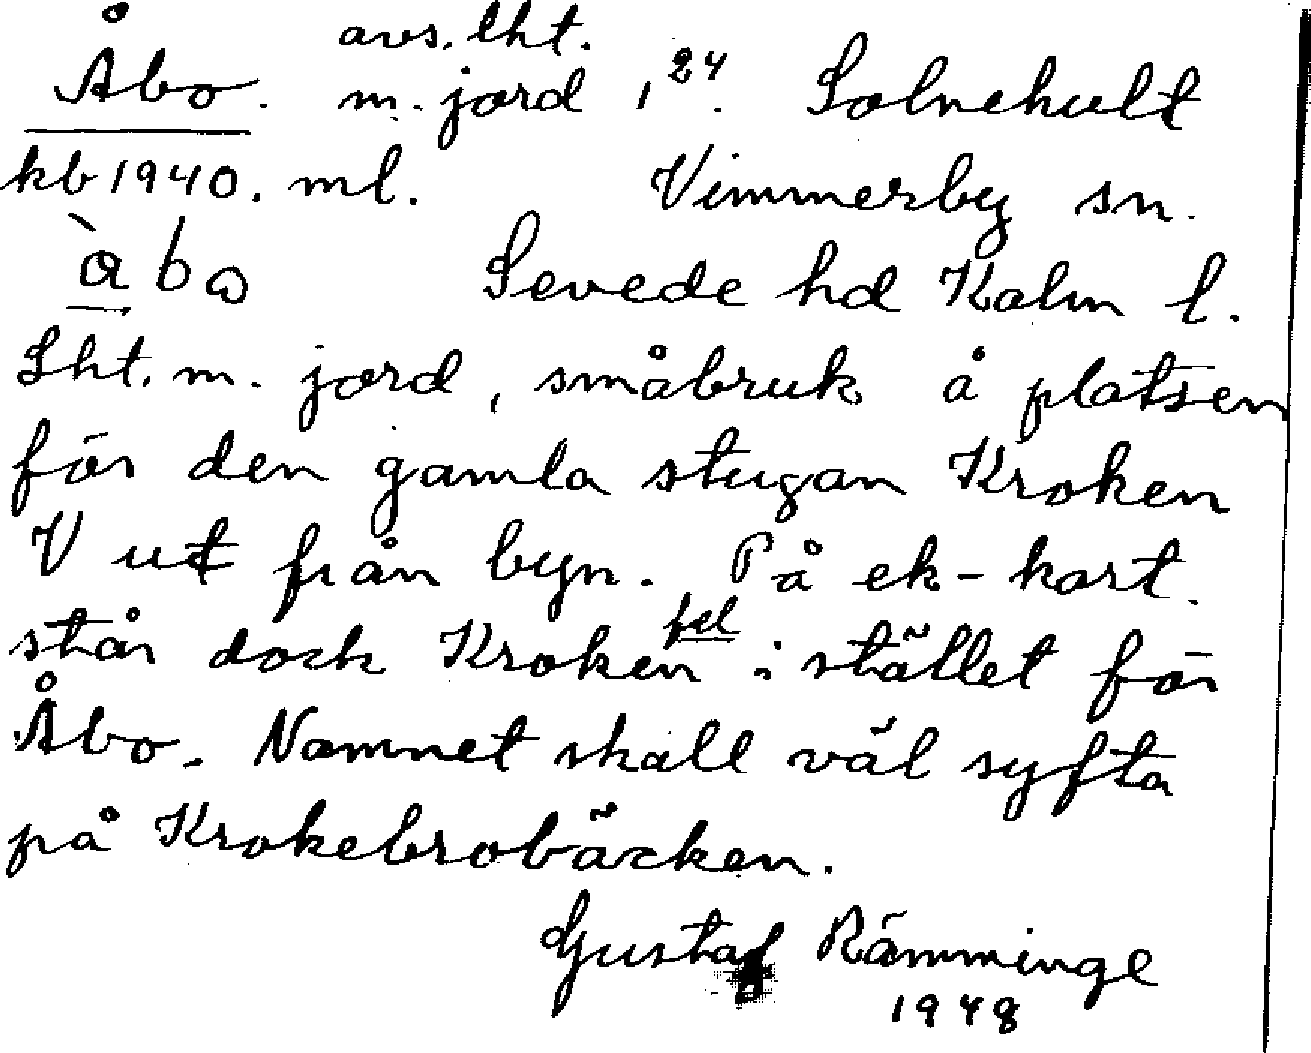 avs. lht.
Åbo. m. jord 1,24. Solnehult
kb 1940. ml. Vimmerby sn.
àbω Sevede hd Kalm l.
Lht. m. jord, småbruk å platsen
för den gamla stugan Kroken
V ut från byn. På ek-kart.
står dock Kroken fel i stället för
Åbo. Namnet skall väl syfta
på Krokebrobäcken.
Gustaf Rämminge
1948